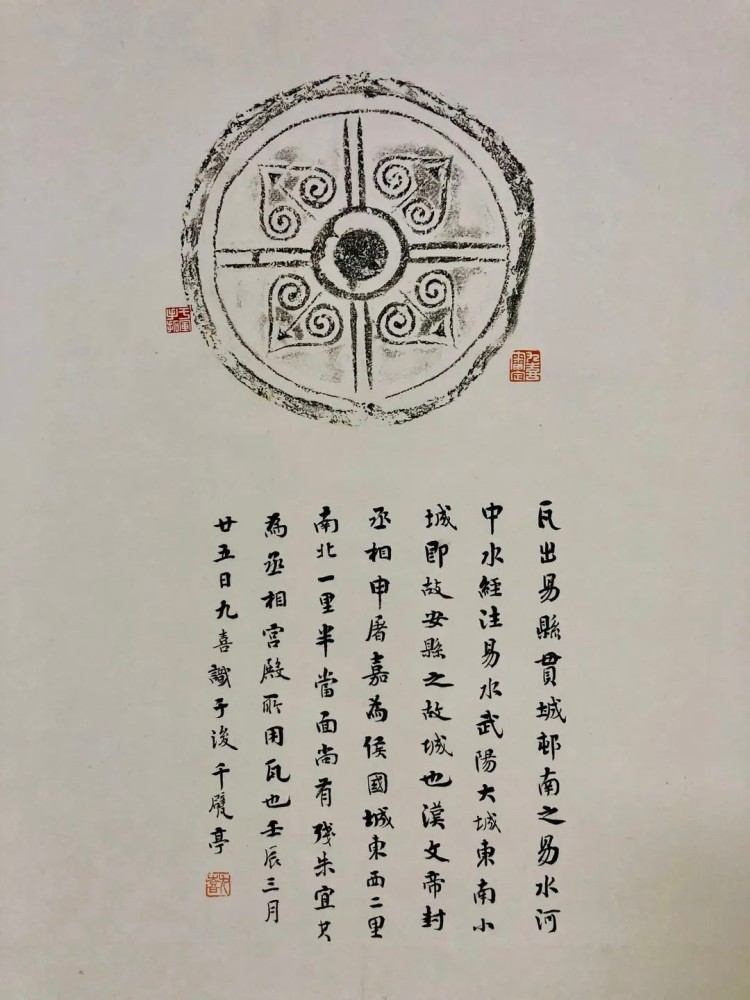 瓦出易縣貫城邨南之易水河
中水經注易水武陽大城東南小
城即故安縣之故城也漢文帝封
丞相申屠嘉為侯國城東西二里
南北一里半當面尚有殘朱宜其
為丞相宮殿所用瓦也壬辰三月
廿五日九喜識于後千甓亭
九喜